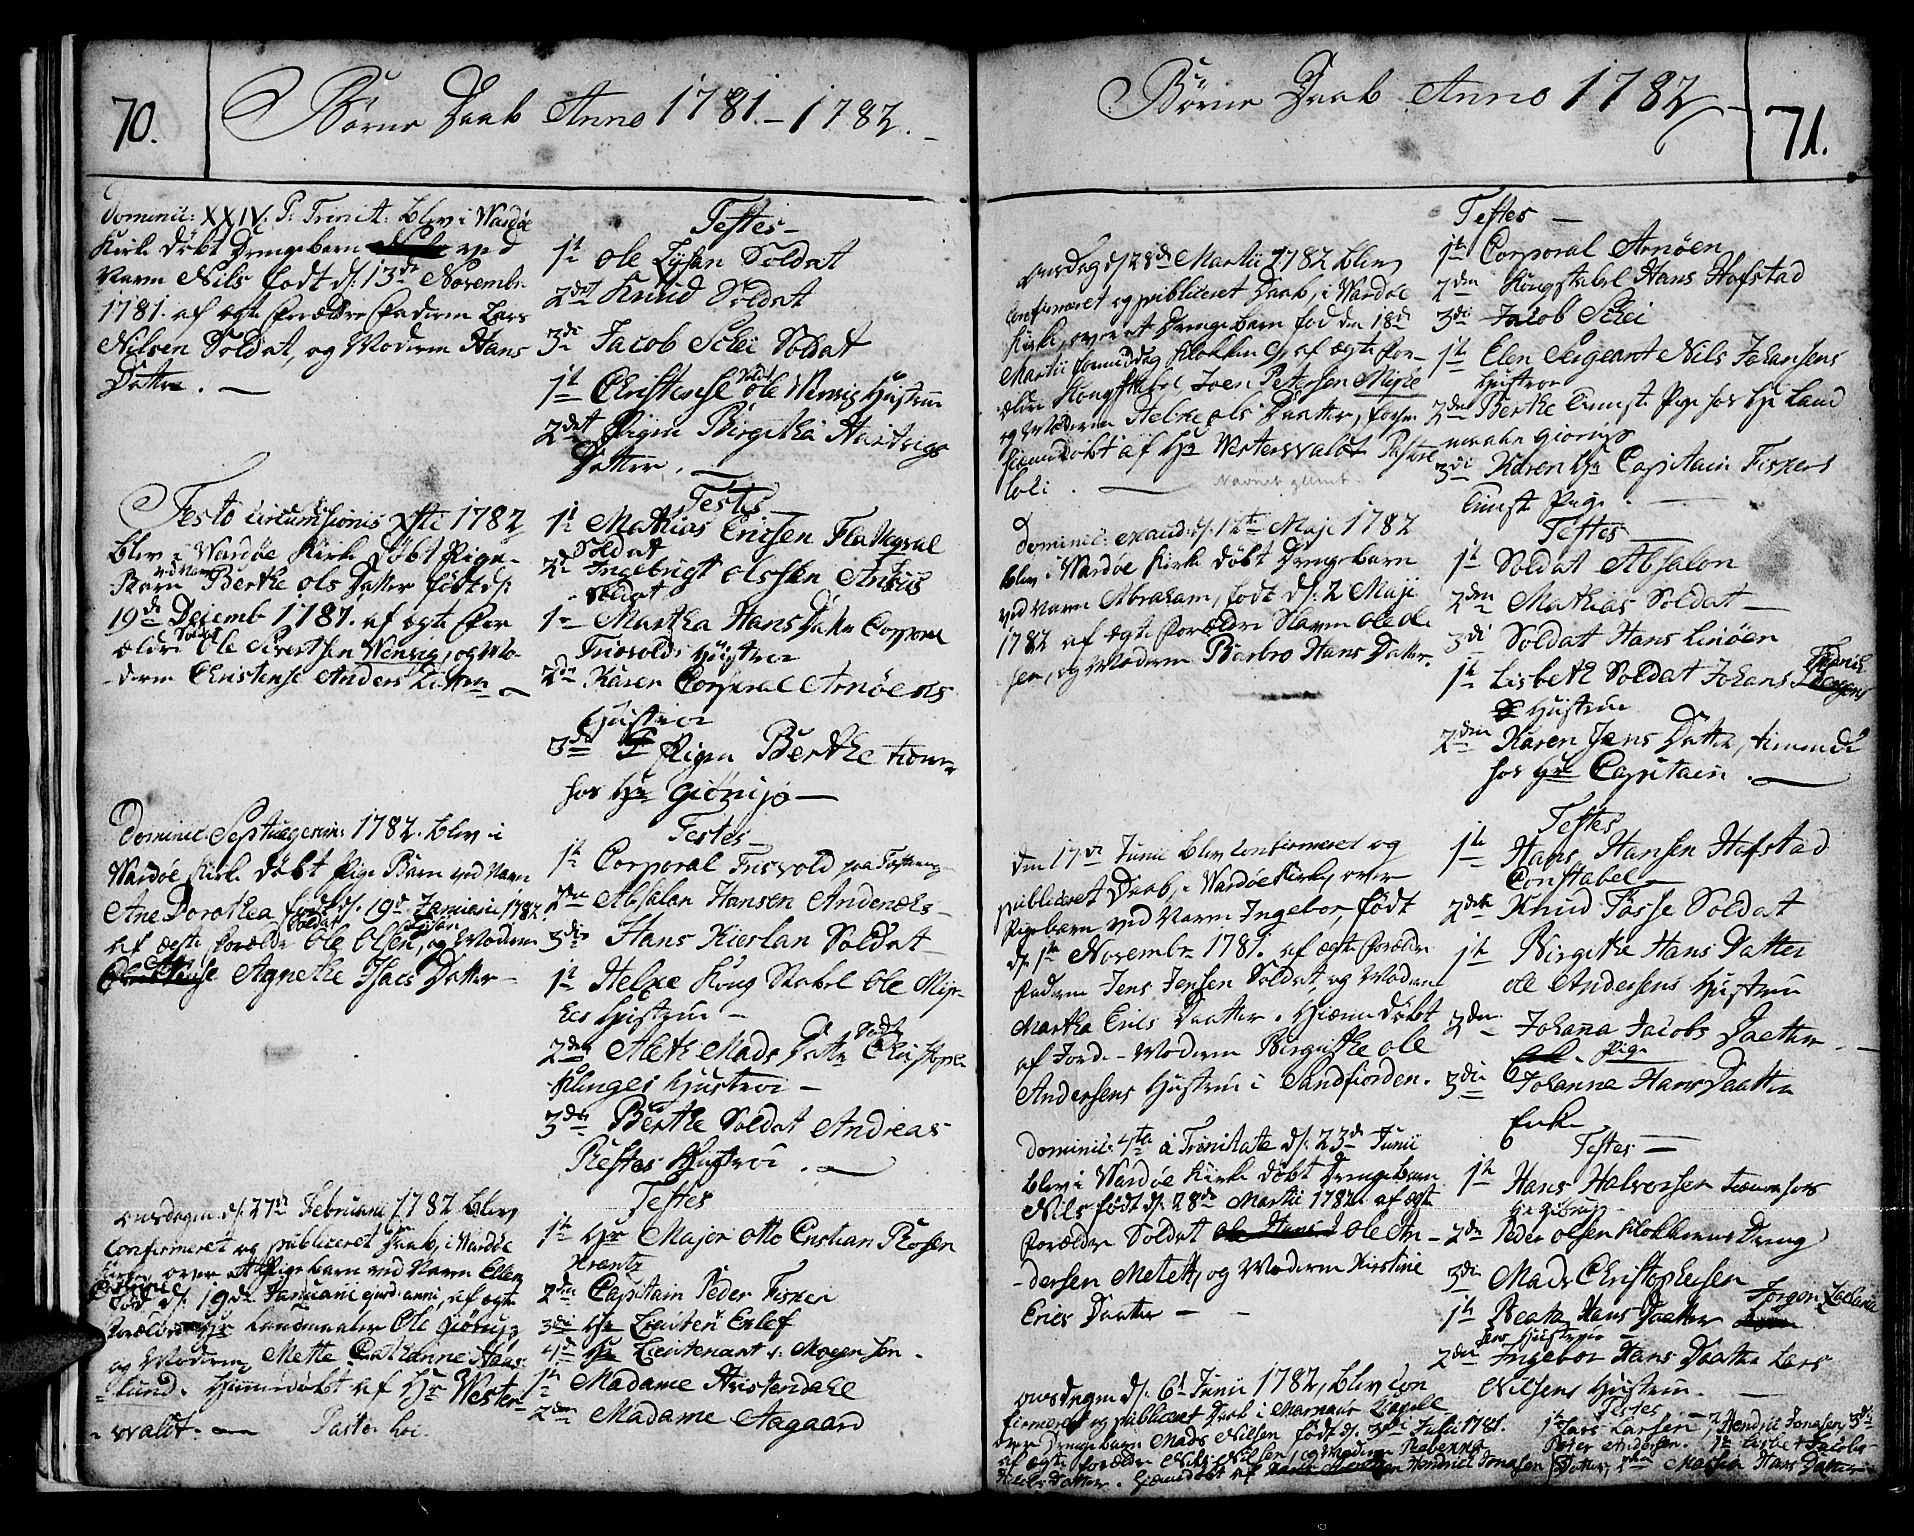 70.
Børne Daab Anno 1781 - 1782.
Dominic: XXIV. P: Trinit: blev i Wardøe
Kirke døbt Drengebarn ved
Navn Nils født d: 13de Novembr.
1781. af ægte Forældre Faderen Lars
Nilsen Soldat, og Moderen Hans
Datter.
Testes
1te Ole Soldat
2det Knud Soldat
3di Jacob Schei Soldat
1te Christense Soldat Ole Wensig Hustrue
2det Pigen Birgitha Hartvigs
Datter.
Festo circumsionis xsti 1782
blev i Wardøe Kirke døbt Pige-
Barn ved Navn Berthe Ols Datter født d:
19de Decemb 1781. af ægte For
ældre Soldat Ole Wensig, og Mo-
deren Christense Anders Datter
Testes
1te Mathias Ericsen
Soldat
2de Ingebrigt Olssen
Soldat
1te Martha Hans Datter Corporal
Frisvolds Hustroe
2de Karen Corporal Arnøens
Hustroe
3de Pigen Berthe tiener
hos Hr
Dominic: Septuagesim: 1782. blev i
Wardøe Kirke døbt Pige Barn ved Navn
Ane Dorothea født d: 19de Januarii 1782.
af ægte Forældre Soldat Ole Olsen, og Moderen
Agnethe Isacs Datter
Testes
1te Corporal Frisvold paa
2den Absalon Hansen Andenæs
3die Hans Kierlan Soldat
1te Helche Kong Stabel Ole Mip-
kes Hustrue
2den Aleth Mads Datter Soldat Christopher
Klinges Hustroe
3de Berthe Soldat Andreas
Restes Hustroe.
Onsdagen d: 27de Februarii 1782 blev
confirmeret og publiceret Daab, i Wardøe
Kirke over et Pigebarn ved Navn Ellen
Cathrine
fød d: 19de Januarii ejusd: anni, af ægte
Forældre Hr Landmaaler Ole Giørup,
og Moderen Mette Cathrinne Haas-
lund. Hiemmedøbt af Hr Wester-
waldt. Pastor loci.
Testes
1te Hr Major Otto Cristian Rosen
Krantz
2den Capitain Peder Fisker
3di Hr Lieuten: Erlef
4de Hr Lieutenant v: Mogensøn.
1te Madame Kristendahl
2den Madame Aagaard
Børne Daab Anno 1782
71.
Onsdag d: 28de Martii 1782 blev
confirmeret og publiceret Daab, i Wardøe
Kirke, over et Drengebarn fød den 18de
Martii formiddag Klokken 9, af ægte For-
ældre Kongstabel Joen Petersen
og Moderen Helche Ols Daatter,
hiemmedøbt af Hr Westerwaldt Pastore
loci.
Navnet glemt.
Testes
1te Corporal Arnøen
2den Kongstabel Hans Hofstad
3di Jacob Schei
1te Elen Sergeant Nils Johansens
Hustroe
2den Berthe tienste Pige hos Hr Land
maaler
3di Karen Hr Capitain Fiskers
tienst Pige.
Dominic: exaudi d: 12te Maji 1782
blev i Wardøe Kirke døbt Drengebarn
ved Navn Abraham, født d: 2 Maji
1782 af ægte Forældre Slaven Ole Ol-
sen, og Moderen Barbro Hans Datter.
Testes
1te Soldat Absalon
2den Mathias Soldat
3di Soldat Hans Linøen
1te Lisbeth Soldat Johans
Hustrue
2den Karen Jens Datter, tienende
hos Hr Capitain.
Den 17de Junii blev confirmeret og
publiceret Daab, i Wardøe Kirke, over
Pigebarn ved Navn Ingebor, født
d: 1te Novembr 1781. af ægte Forældre
Faderen Jens Jensen Soldat, og Moderen
Martha Erics Daatter. Hiemme døbt
af Jorde-Moderen Birgithe Ole
Andersens Hustrue i Sandfiorden.
Testes
1te Hans Hansen Hofstad
Constabel
2den Knud Tøsse Soldat
1te Birgithe Hans Datter
Ole Andersens Hustrue
2den Johana Jacobs Daatter
Pige
3die Johanne Hans Daatter
Enke
Dominic: 4ta à Trinitate d: 23de Junii
blev i Wardøe Kirke døbt Drengebarn
Nils, født d: 28de Martii 1782 af ægte
Forældre Soldat Ole Hans Ole An-
dersen Metet, og Moderen Kirstine
Erics Daatter
Testes
1te Hans Halvorsen tiener hos
Hr Giørup
2den Peder Olsen Klokkerens Dreng
3di Mads Christophersen
1te Beata Hans Daatter Jørgen Zacharia
sens Hustroe
2den Ingebor Hans Daatter Lars
Nilsens Hustrue.
Onsdagen d: 6te Junii 1782, blev con
firmeret og publiceret Daab i Marnæur Capelle
over Drengebarn Mads Nilsen født d: 3di Julii 1781.
af ægte forældre Nils Nilsen, og Moderen Rebenna
Nils Datter. hiemmedøbt af Hendric Jonasen
Testes
1te Lars Larsen, 2 Hendric Jonasen 3di
Peter Andersen. 1te Lisbet Jacobs
Datter, 2den Maren Hans Daatter